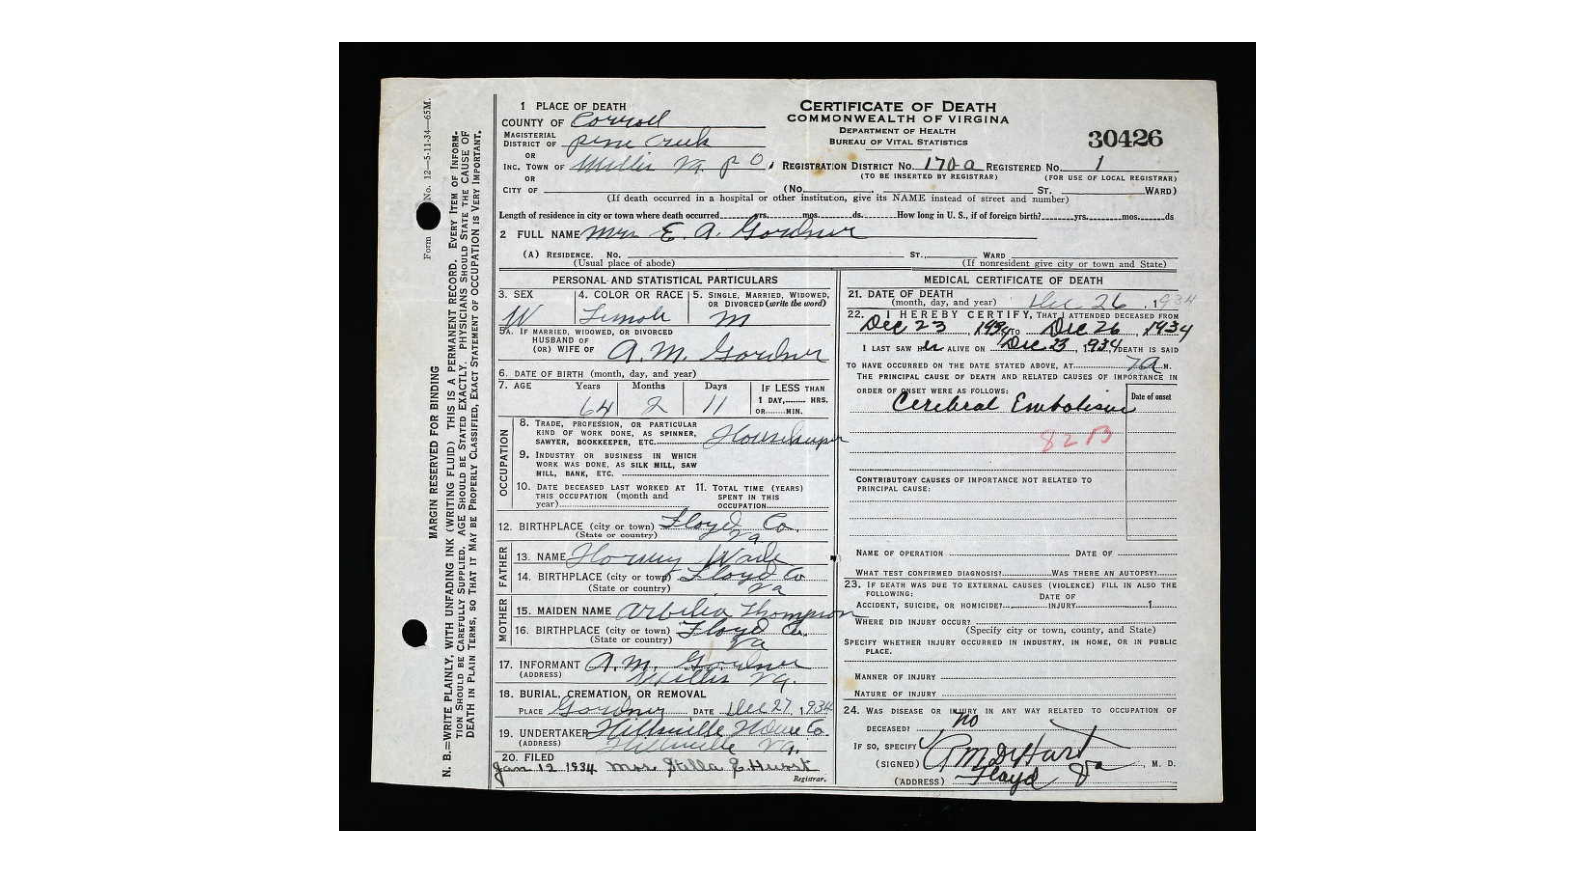 1 PLACE OF DEATH
COUNTY OF Carroll
MAGISTERIAL
DISTRICT OF pine Creek
OR
INC. TOWN OF Willis Va. P O.
OR
CITY OF (No. St. WARD)
CERTIFICATE OF DEATH
COMMONWEALTH OF VIRGINIA
DEPARTMENT OF HEALTH
BUREAU OF VITAL STATISTICS
30426
REGISTRATION DISTRICT No. 170-a REGISTERED No. 1
(TO BE INSERTED BY REGISTRAR) (FOR USE OF LOCAL REGISTRAR)
(If death occurred in a hospital or other institution, give its NAME instead of street and number)
Length of residence in city or town where death occurred yrs. mos. ds. How long in U. S., if of foreign birth? yrs. mos. ds
2 FULL NAME Mrs E. A. Gordner
(A) RESIDENCE. No. ST., WARD
(Usual place of abode) (If nonresident give city or town and State)
PERSONAL AND STATISTICAL PARTICULARS
3. SEX W
4. COLOR OR RACE Female
5. SINGLE, MARRIED, WIDOWED,
OR DIVORCED (write the word)
M
5A. IF MARRIED, WIDOWED, OR DIVORCED
HUSBAND OF
(OR) WIFE OF A. M. Gordner
6. DATE OF BIRTH (month, day, and year)
7. AGE Years Months Days IF LESS THAN
1 DAY, HRS.
OR MIN.
64 2 11
OCCUPATION
8. TRADE, PROFESSION, OR PARTICULAR
KIND OF WORK DONE, AS SPINNER,
SAWYER, BOOKKEEPER, ETC. Housekeeper
9. INDUSTRY OR BUSINESS IN WHICH
WORK WAS DONE, AS SILK MILL, SAW
MILL, BANK, ETC.
10. DATE DECEASED LAST WORKED AT
THIS OCCUPATION (month and
year)
11. TOTAL TIME (YEARS)
SPENT IN THIS
OCCUPATION
12. BIRTHPLACE (city or town) Floyd Co.
(State or country) Va
FATHER
13. NAME Wade
14. BIRTHPLACE (city or town) Floyd Co
(State or country) Va
MOTHER
15. MAIDEN NAME Arbelia Thompson
16. BIRTHPLACE (city or town) Floyd Co.
(State or country) Va
17. INFORMANT A. M. Gordner
(ADDRESS) Willis Va.
18. BURIAL, CREMATION, OR REMOVAL
PLACE Gordner DATE Dec 27, 1934
19. UNDERTAKER Hillsville Co
(ADDRESS) Hillsville Va.
20. FILED
Jan 12 1934 Mrs. Stella E. Hurst
Registrar.
MEDICAL CERTIFICATE OF DEATH
21. DATE OF DEATH
(month, day, and year) Dec 26, 1934
22. I HEREBY CERTIFY, THAT I ATTENDED DECEASED FROM
Dec 23, 1934 TO Dec 26, 1934
I LAST SAW her ALIVE ON Dec 23, 1934, DEATH IS SAID
TO HAVE OCCURRED ON THE DATE STATED ABOVE, AT 7a M.
THE PRINCIPAL CAUSE OF DEATH AND RELATED CAUSES OF IMPORTANCE IN
ORDER OF ONSET WERE AS FOLLOWS:
Date of onset
Cerebral Embolism
82 B
CONTRIBUTORY CAUSES OF IMPORTANCE NOT RELATED TO
PRINCIPAL CAUSE:
NAME OF OPERATION DATE OF
WHAT TEST CONFIRMED DIAGNOSIS? WAS THERE AN AUTOPSY?
23. IF DEATH WAS DUE TO EXTERNAL CAUSES (VIOLENCE) FILL IN ALSO THE
FOLLOWING:
DATE OF
ACCIDENT, SUICIDE, OR HOMICIDE? INJURY 1
WHERE DID INJURY OCCUR?
(Specify city or town, county, and State)
SPECIFY WHETHER INJURY OCCURRED IN INDUSTRY, IN HOME, OR IN PUBLIC
PLACE.
MANNER OF INJURY
NATURE OF INJURY
24. WAS DISEASE OR INJURY IN ANY WAY RELATED TO OCCUPATION OF
DECEASED? no
IF SO, SPECIFY
(SIGNED) DeHart, M. D.
(ADDRESS) Floyd Va
Form No. 12—5-11-34—65M.
MARGIN RESERVED FOR BINDING
N. B.—WRITE PLAINLY, WITH UNFADING INK (WRITING FLUID) THIS IS A PERMANENT RECORD. EVERY ITEM OF INFORM-
TION SHOULD BE CAREFULLY SUPPLIED. AGE SHOULD BE STATED EXACTLY. PHYSICIANS SHOULD STATE THE CAUSE OF
DEATH IN PLAIN TERMS, SO THAT IT MAY BE PROPERLY CLASSIFIED, EXACT STATEMENT OF OCCUPATION IS VERY IMPORTANT.